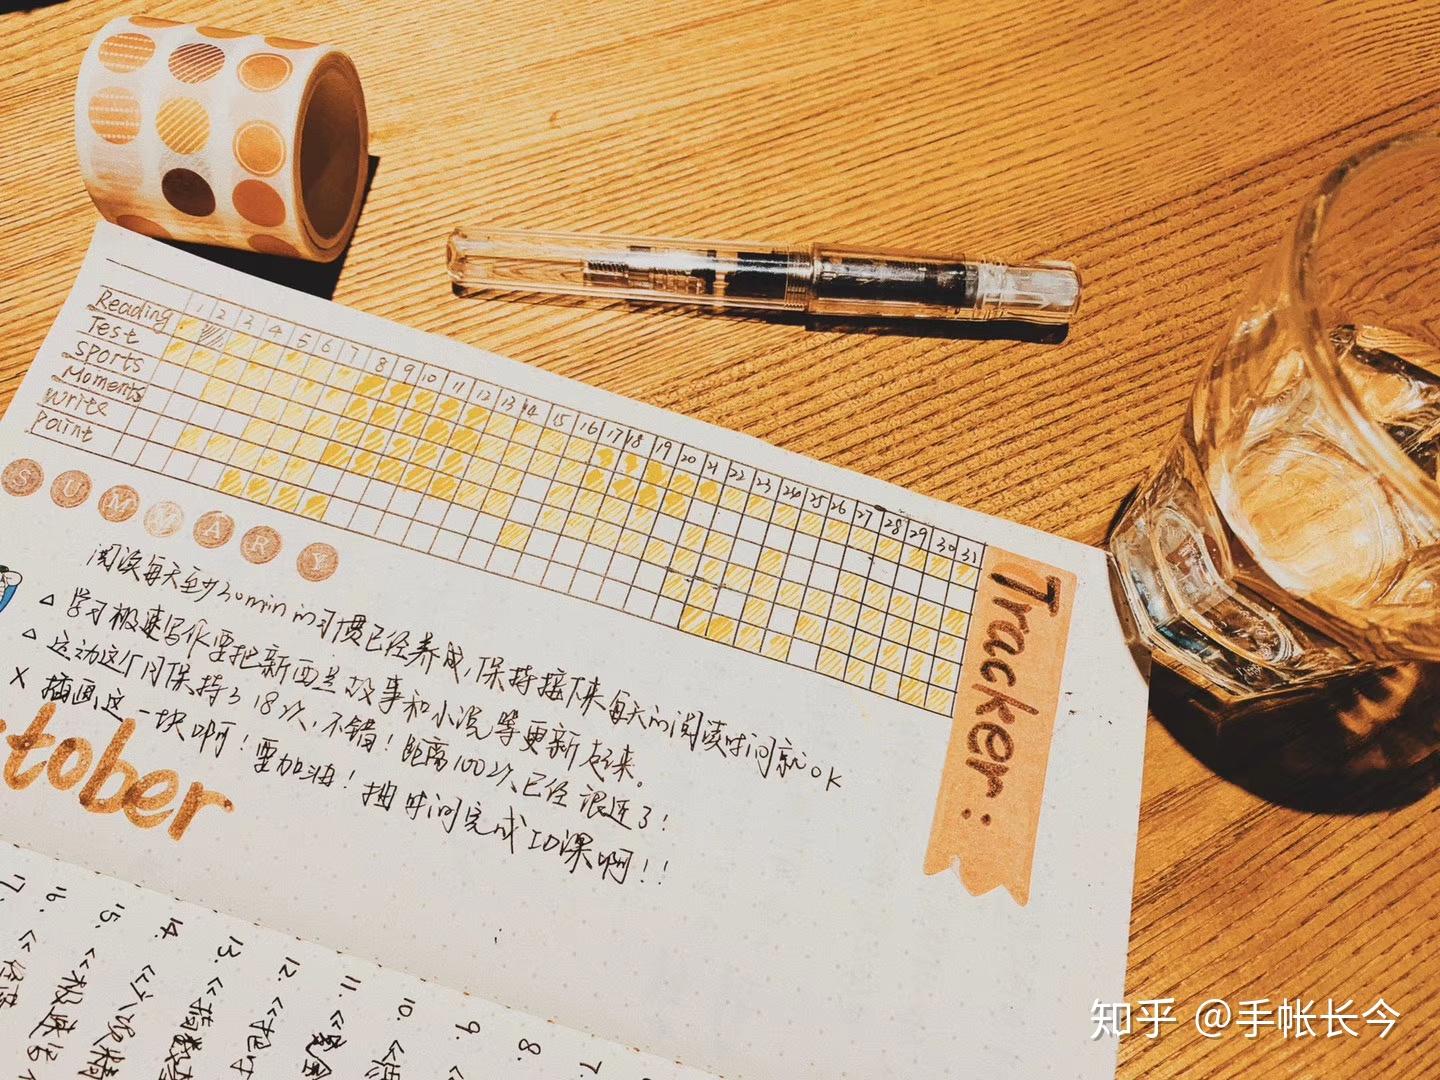 1 2 3 4 5 6 7 8 9 10 11 12 13 14 15 16 17 18 19 20 21 22 23 24 25 26 27 28 29 30 31
Reading
Test
Sports
Moments
Write
Paint
Tracker:
SUMMARY
阅读每天至少30min的习惯已经养成,保持接下来每天的阅读时间就ok
△ 学习极速写作要把新西兰故事和小说等更新起来。
△ 运动这个月保持了18次,不错!距离100次已经很近了!
X 插画这一块啊!要加油!抽时间完成功课啊!!
tober
7.
8.
9.
10.
11.
12. 《把
13.
14.
15. 《极速写
16.
17.
知乎 @手帐长今